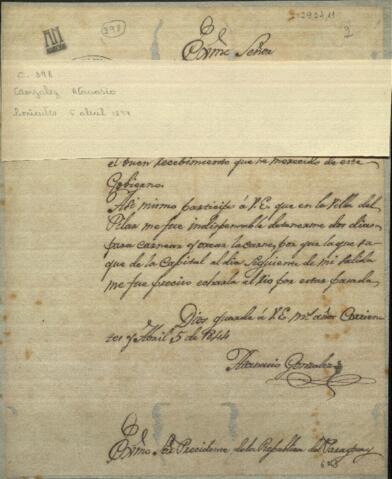 398
2
Exmo. Señor
C. 398
Gonzalez Atanasio
Corrientes 5 abril 1844
el buen recebimiento que ha merecido de este
Gobierno.
Asi mismo participo á V.E. que en la Villa del
Pilar me fue indispensable detenerme dos dias
para carnear y secar la carne, por que la que sa-
que de la Capital al dia siguiente de mi salida
me fue preciso echarla al Rio por estar pasada.
Dios guarde á V.E. ms. años Corrien-
tes y Abril 5 de 1844
Atanacio Gonzalez
Exmo. Sr. Presidente de la Republica del Paraguay